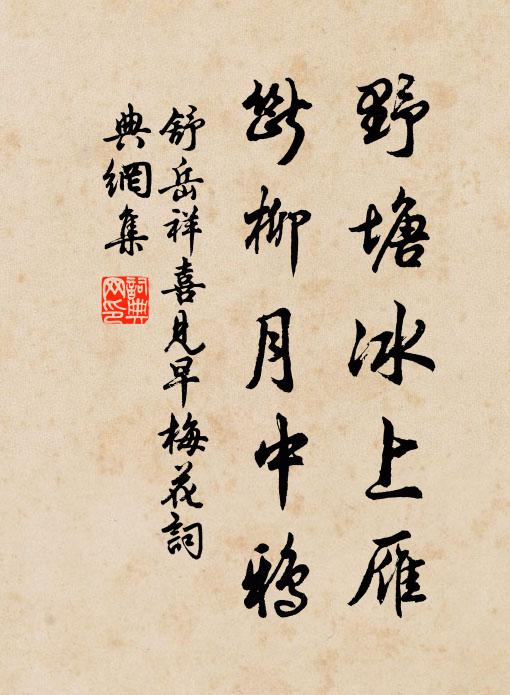 野塘冰上雁
断柳月中鴉
舒岳祥喜見早梅花詞
典網集
詞典网印